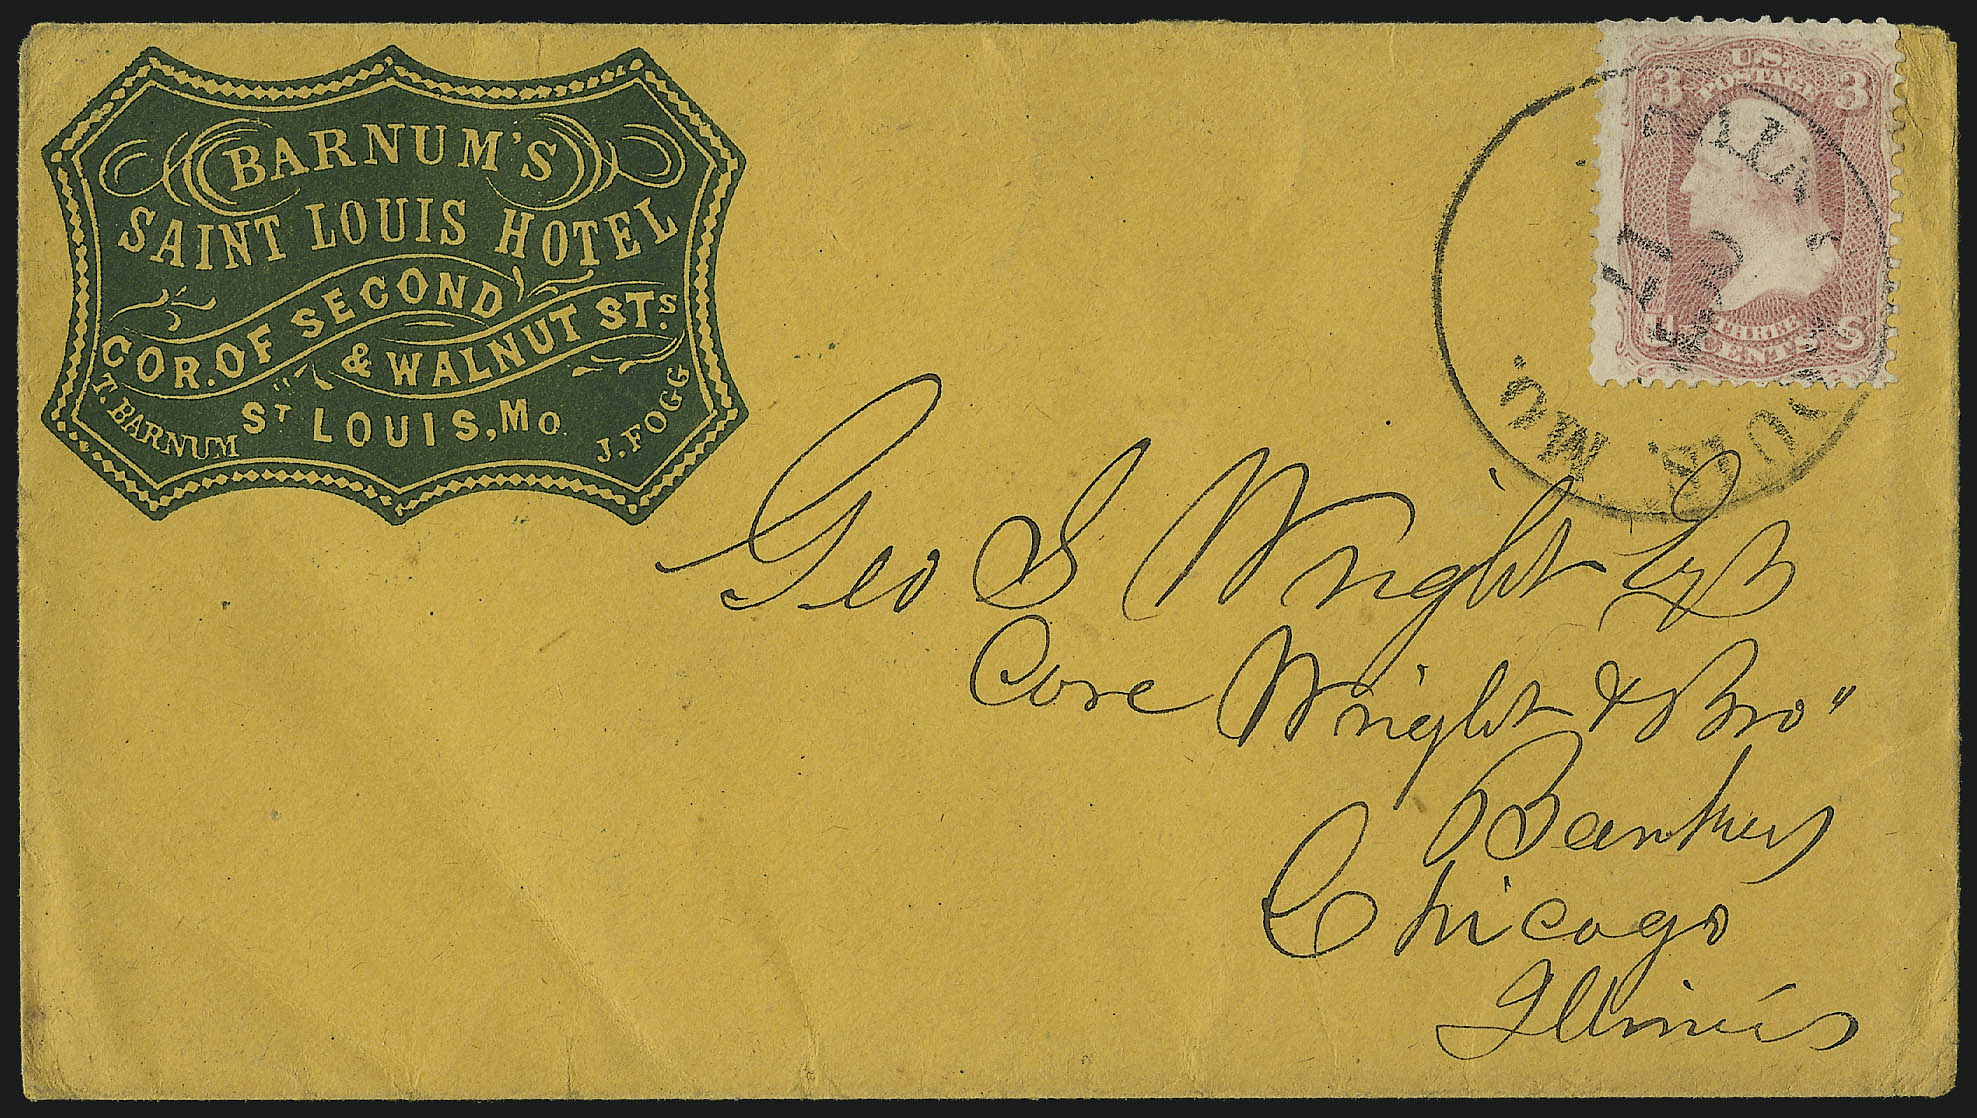 BARNUM'S
SAINT LOUIS HOTEL
COR. OF SECOND
& WALNUT STS.
ST LOUIS, MO.
T. BARNUM
J. FOGG
U.S.
POSTAGE
3 3
THREE
CENTS
LOUIS. MO.
Geo S Wright Esq
Care Wright & Bro"
Bankers
Chicago
Illinois